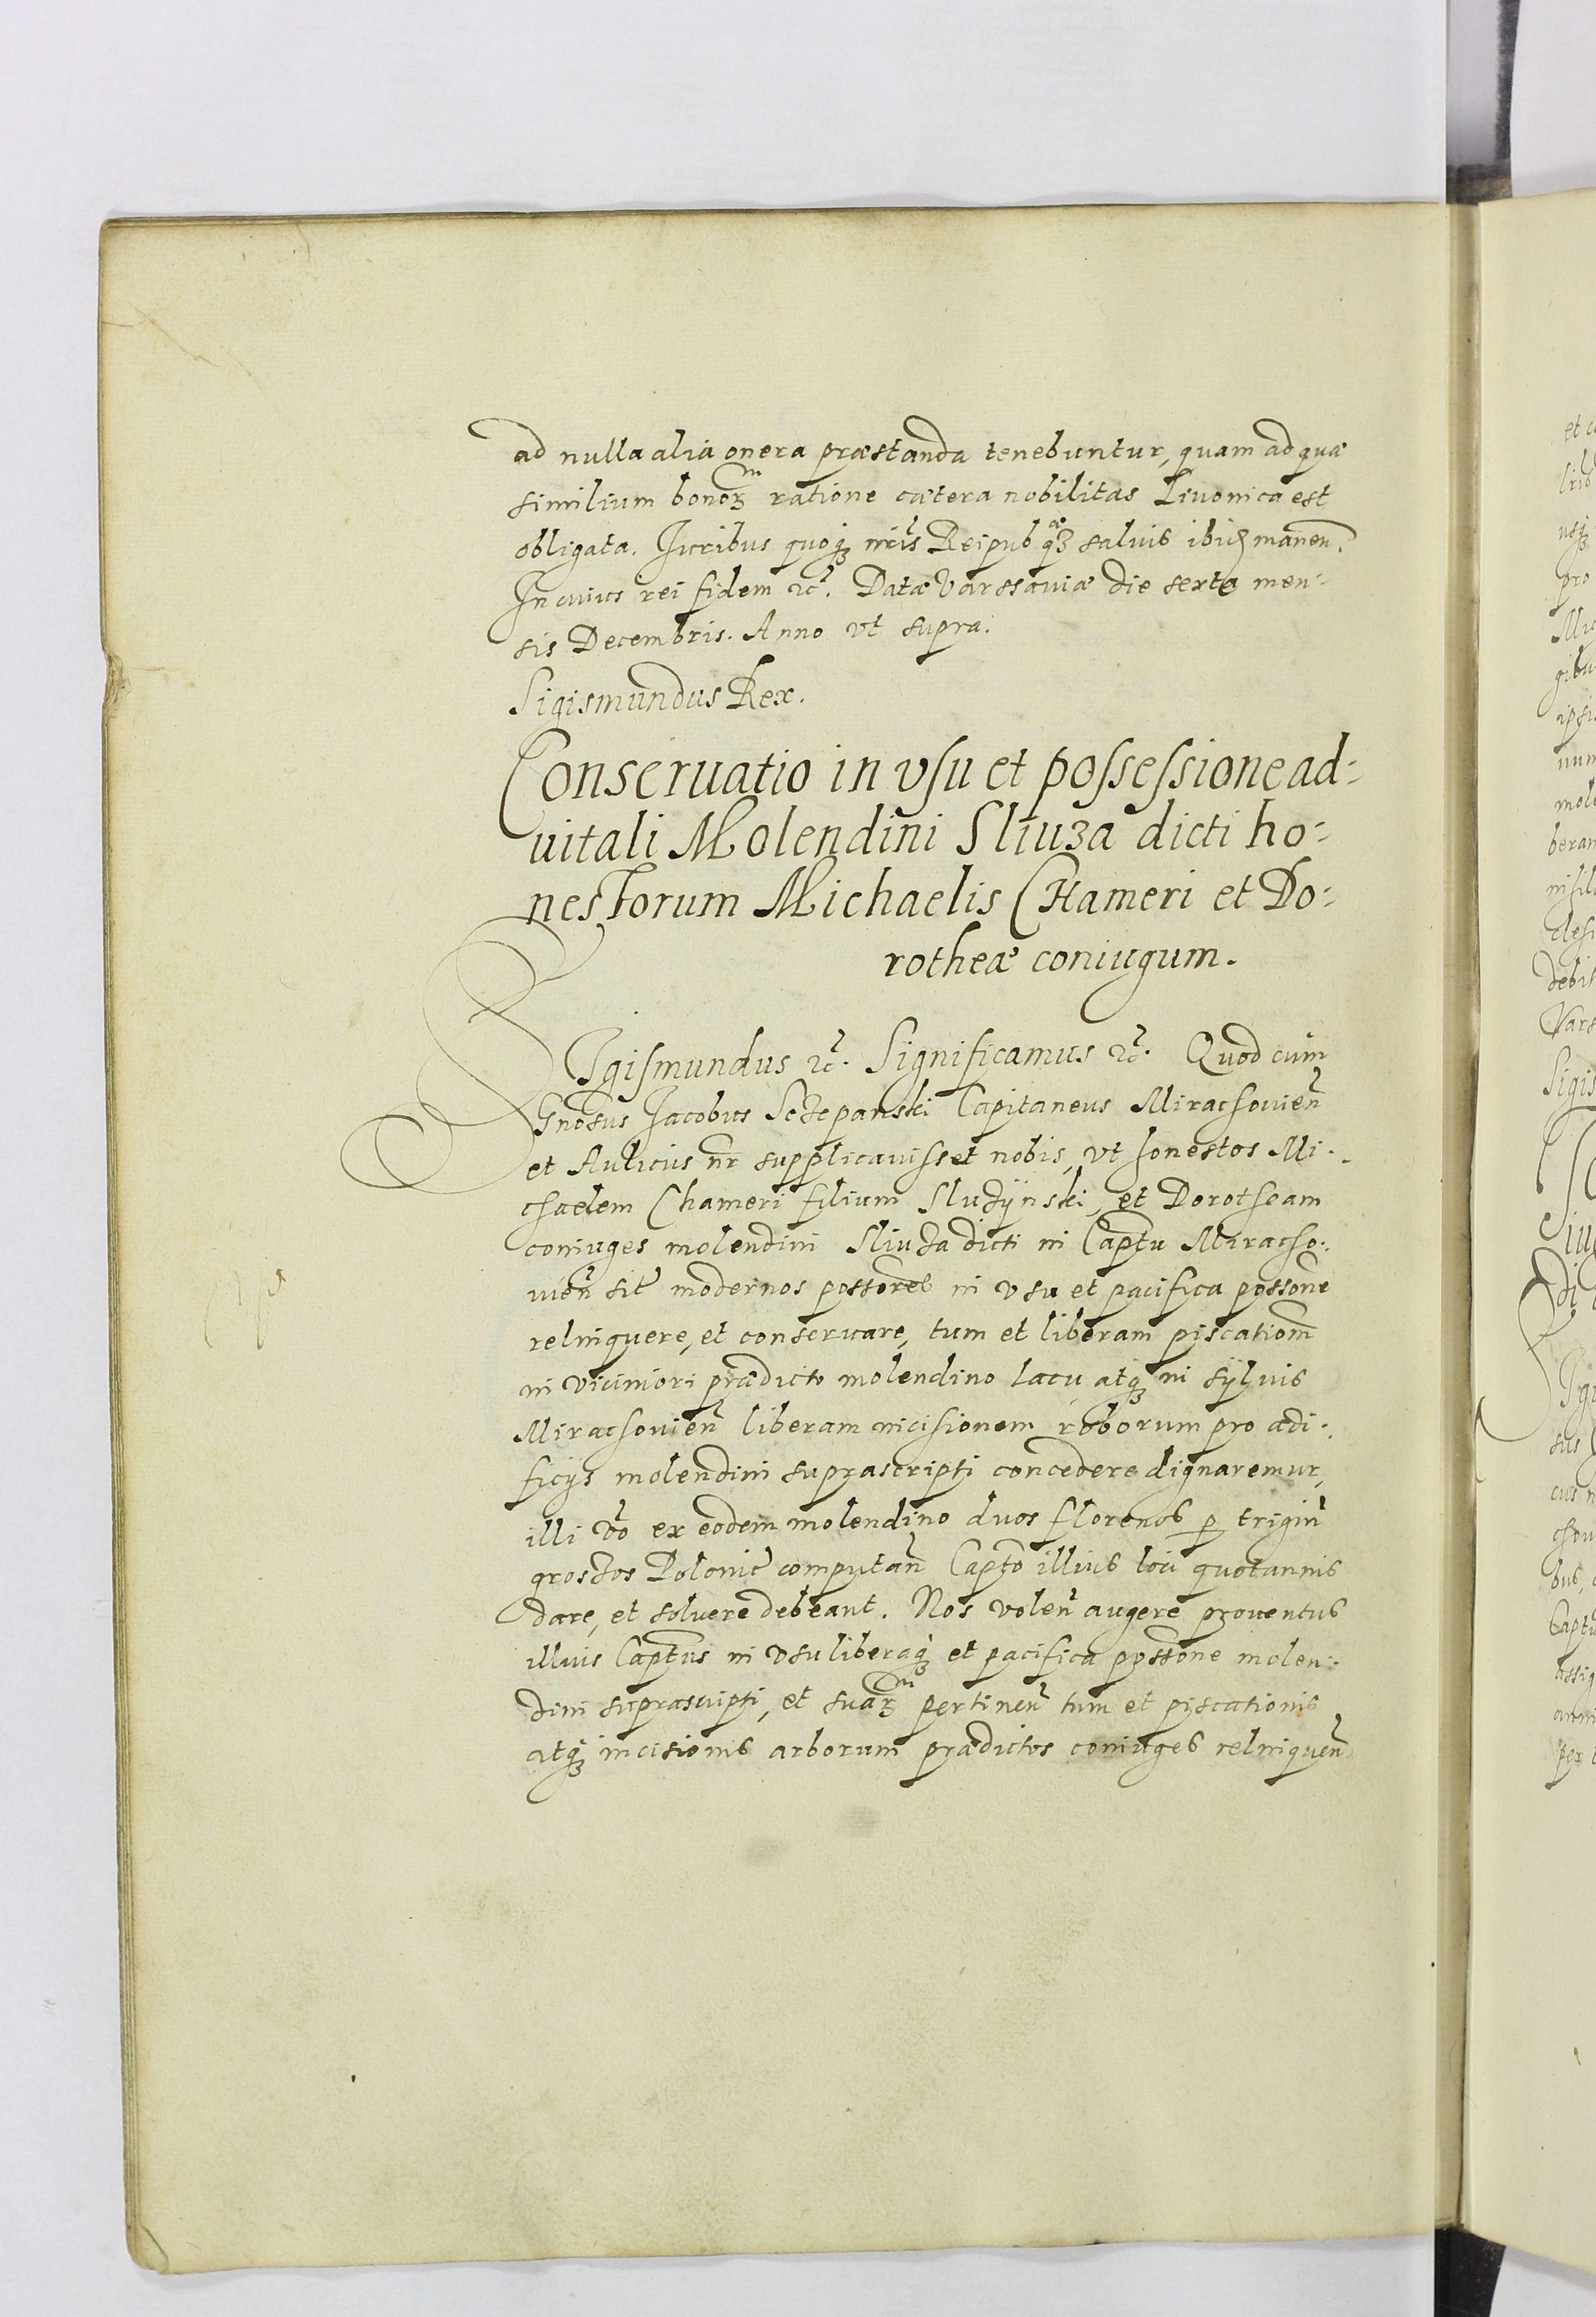 ad nulla alia onera præstanda tenebuntur, quam ad quæ
similium bonoꝝ ratione cætera nobilitas Livonica est
obligata. Iuribus quoqꝫ nr̃is Reipub qꝫ salvis ibidꝫ manen̄.
In cuius rei fidem ꝛc̃. Datæ Varssaviæ die sexta men-
sis Decembris. Anno vt supra.
Sigismundus Rex.
Conseruatio in vſu et poſseſsione ad-
uitali Molendini Sliuza dicti ho-
nestorum Michaelis CHameri et Do-
rotheæ coniugum.
SIgiſmundus ꝛc̃. Significamus ꝛc̃. Quod cum
Gnōsus Iacobus Sczepanski Capitaneus Mirachouien̄
et Aulicus nr̃ supplicauiſset nobis, vt honestos Mi-
chaelem Chameri filium Sluzÿnski, et Dorotheam
coniuges molendini Sliuza dicti in Captu Miracho-
uien̄ sit̃ modernos possores in vsu et pacifica possōne
relinquere, et conseruare, tum et liberam piscationē
in viciniori prædicto molendino lacu atqꝫ in sÿluis
Mirachouien̄ liberam incisionem roborum pro ædi-
ficijs molendini suprascripti concedere dignaremur,
illi vō ex eodem molendino duos florenos ꝑ trigin̄
groszos Polonic̃ computan̄ Capto illius loci quotannis
dare, et soluere debeant. Nos volen̄ augere prouentus
illius Captus in vsu liberaqꝫ et pacifica possōne molen-
dini suprascripti, et suaꝝ pertinen̄ tum et piscationis
atqꝫ incisionis arborum prædictos coniuges relinquen̄